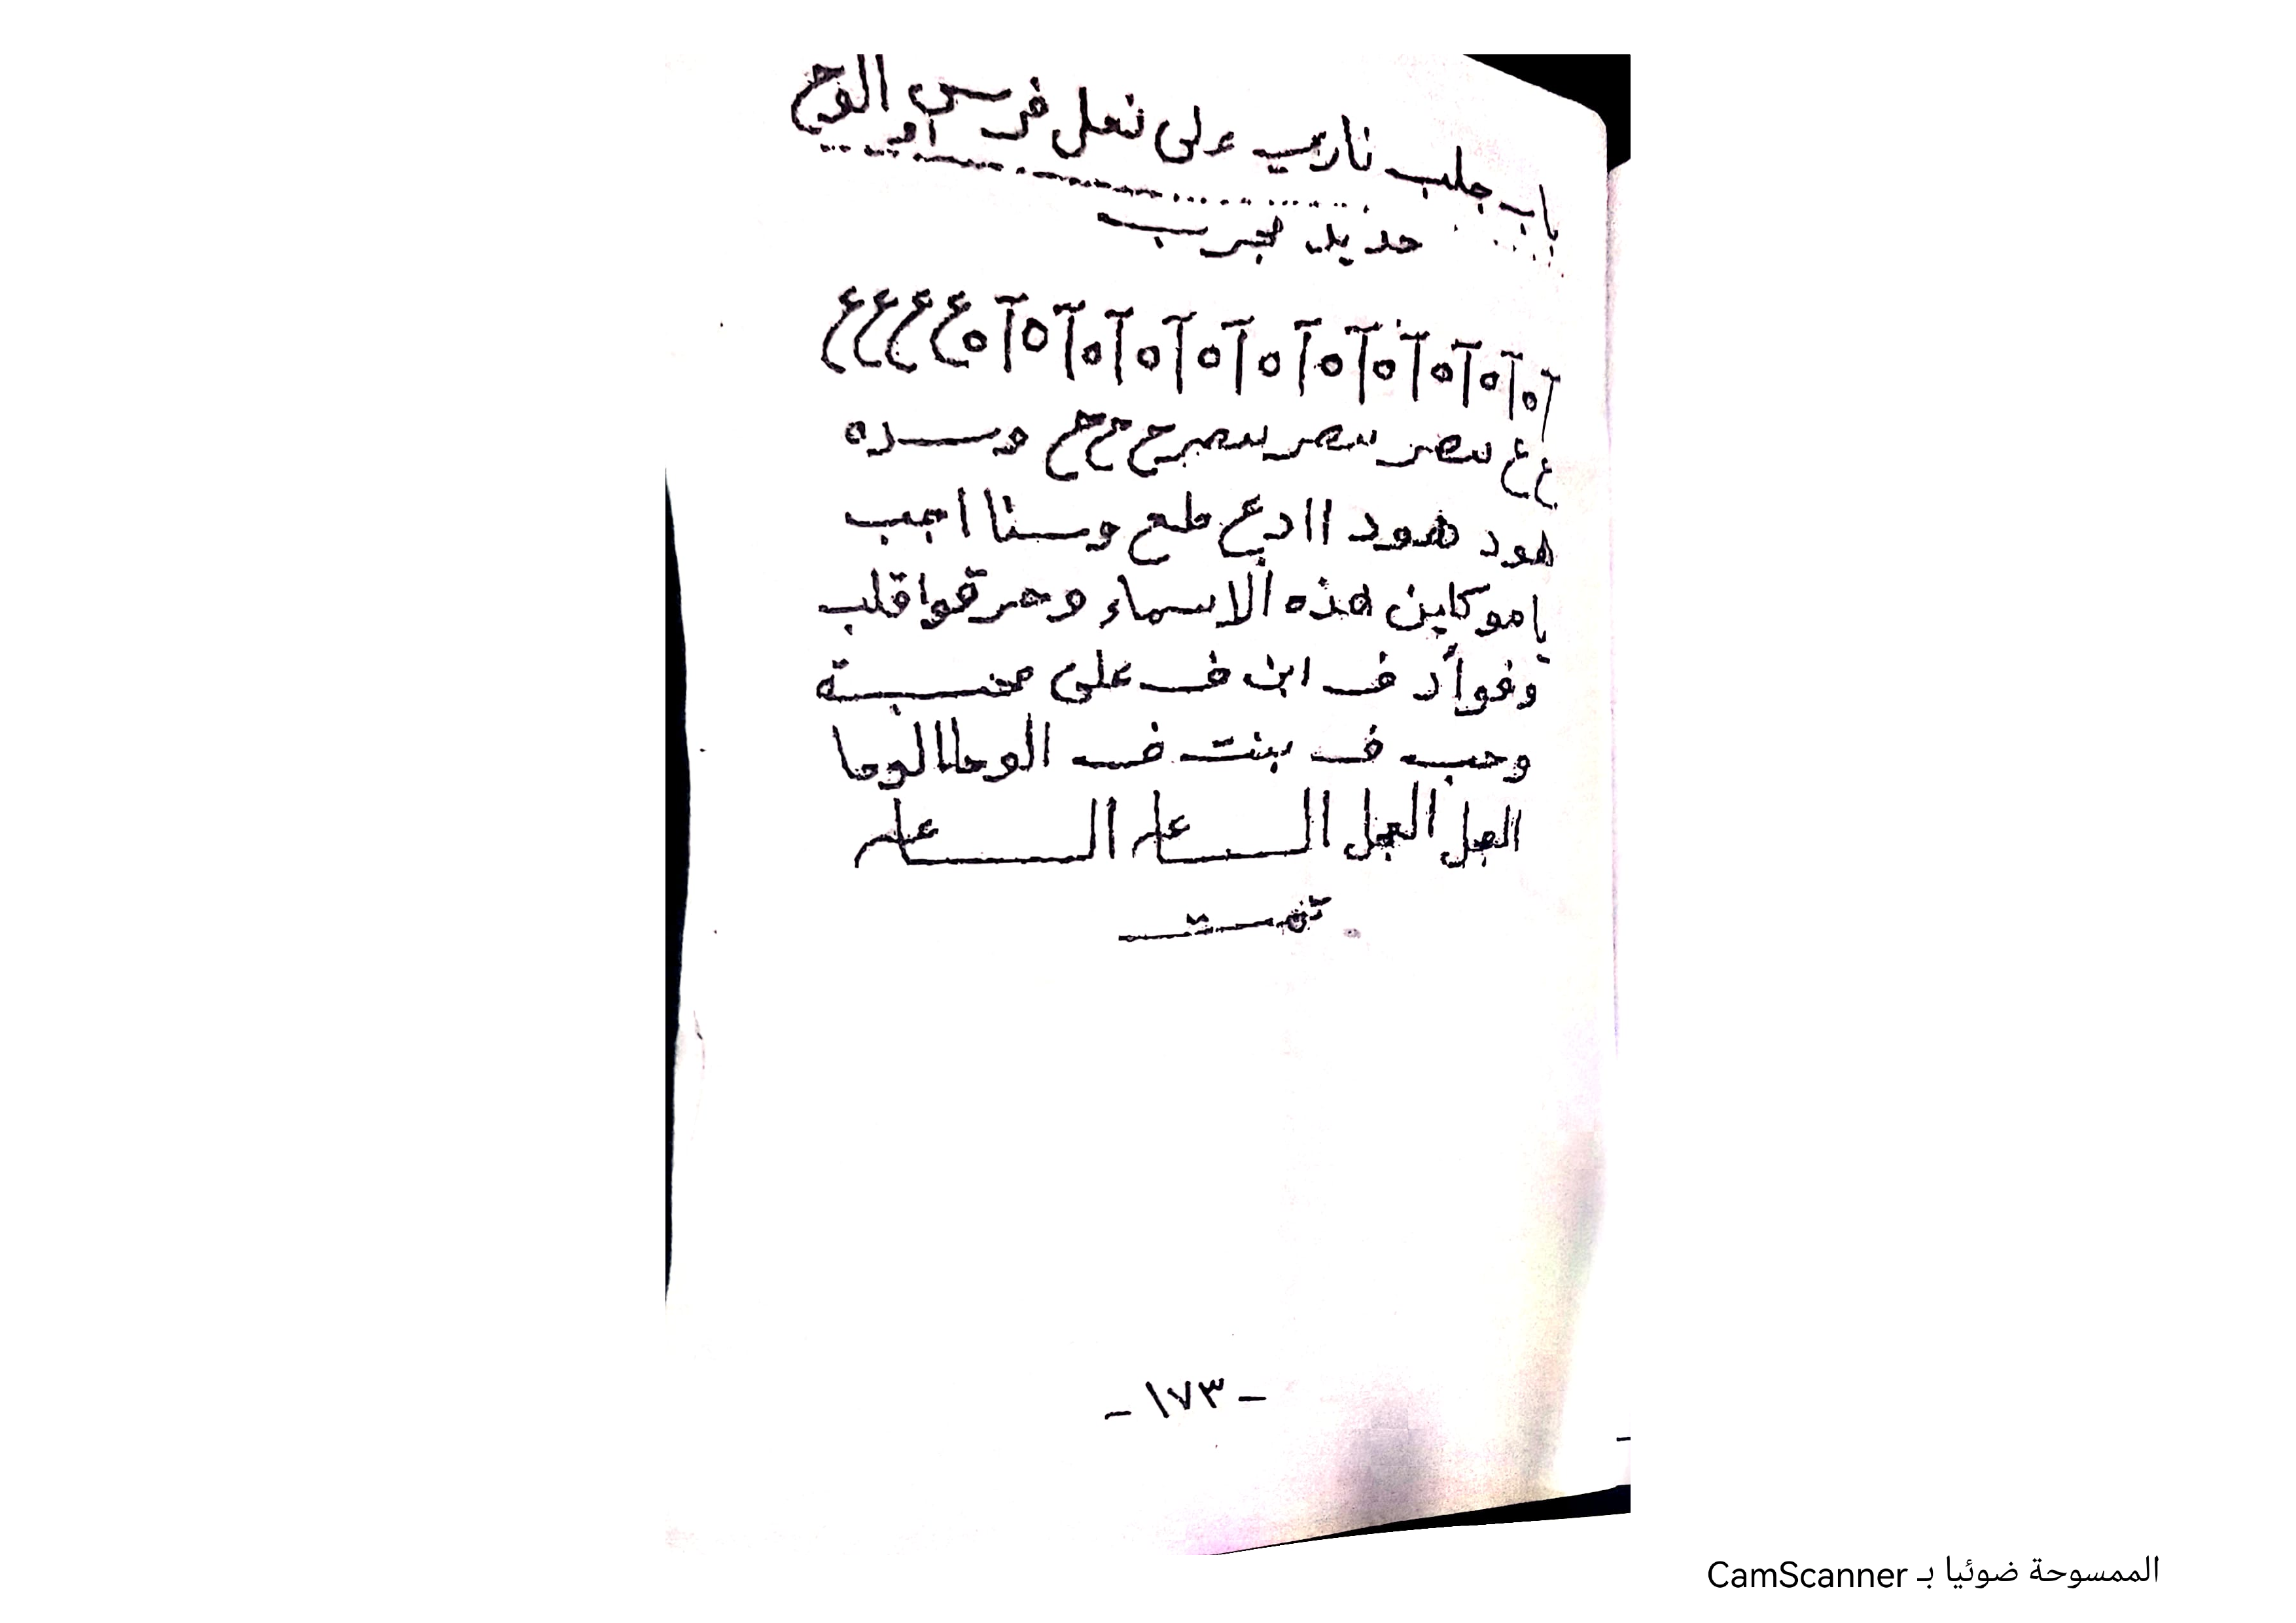 باب جلب ناري على نعل فرس او الوح
حديد مجرب
آه آه آه آه آه آه آه آه آه آه آه ع ع ع ع
ع ع سصر سصر سصرح ح ح وسده
هود هود اا دع طع وسنا اجب
ياموكلين هذه الاسماء وحرقوا قلب
وفوأد ف ابن ف على محبة
وحب ف بنت ف الوحا الوحا
العجل العجل الساعه الساعه
تمت
- ١٧٣ -
الممسوحة ضوئيا بـ CamScanner